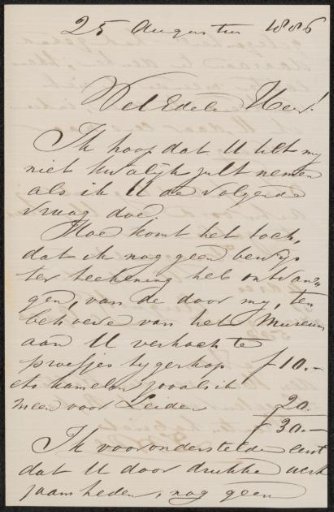 25 Augustus 1886
Wel Edele Heer!
Ik hoop dat U het my
niet kwalijk zult nemen
als ik U de volgende
vraag doe:
Hoe komt het toch,
dat ik nog geen bewijs
ter teekening heb ontvan
gen, van de door my, ten
behoeve van het Museum
aan U verkochte
proefjes tijgerkop f 10.-
en kameleon zooals ik
meen voor Leiden 20.
f 30.-
Ik vooronderstelde eerst
dat U door drukke werk
zaamheden, nog geen